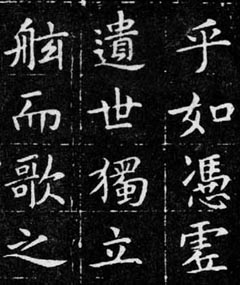 乎如憑虛
遺世獨立
舷而歌之